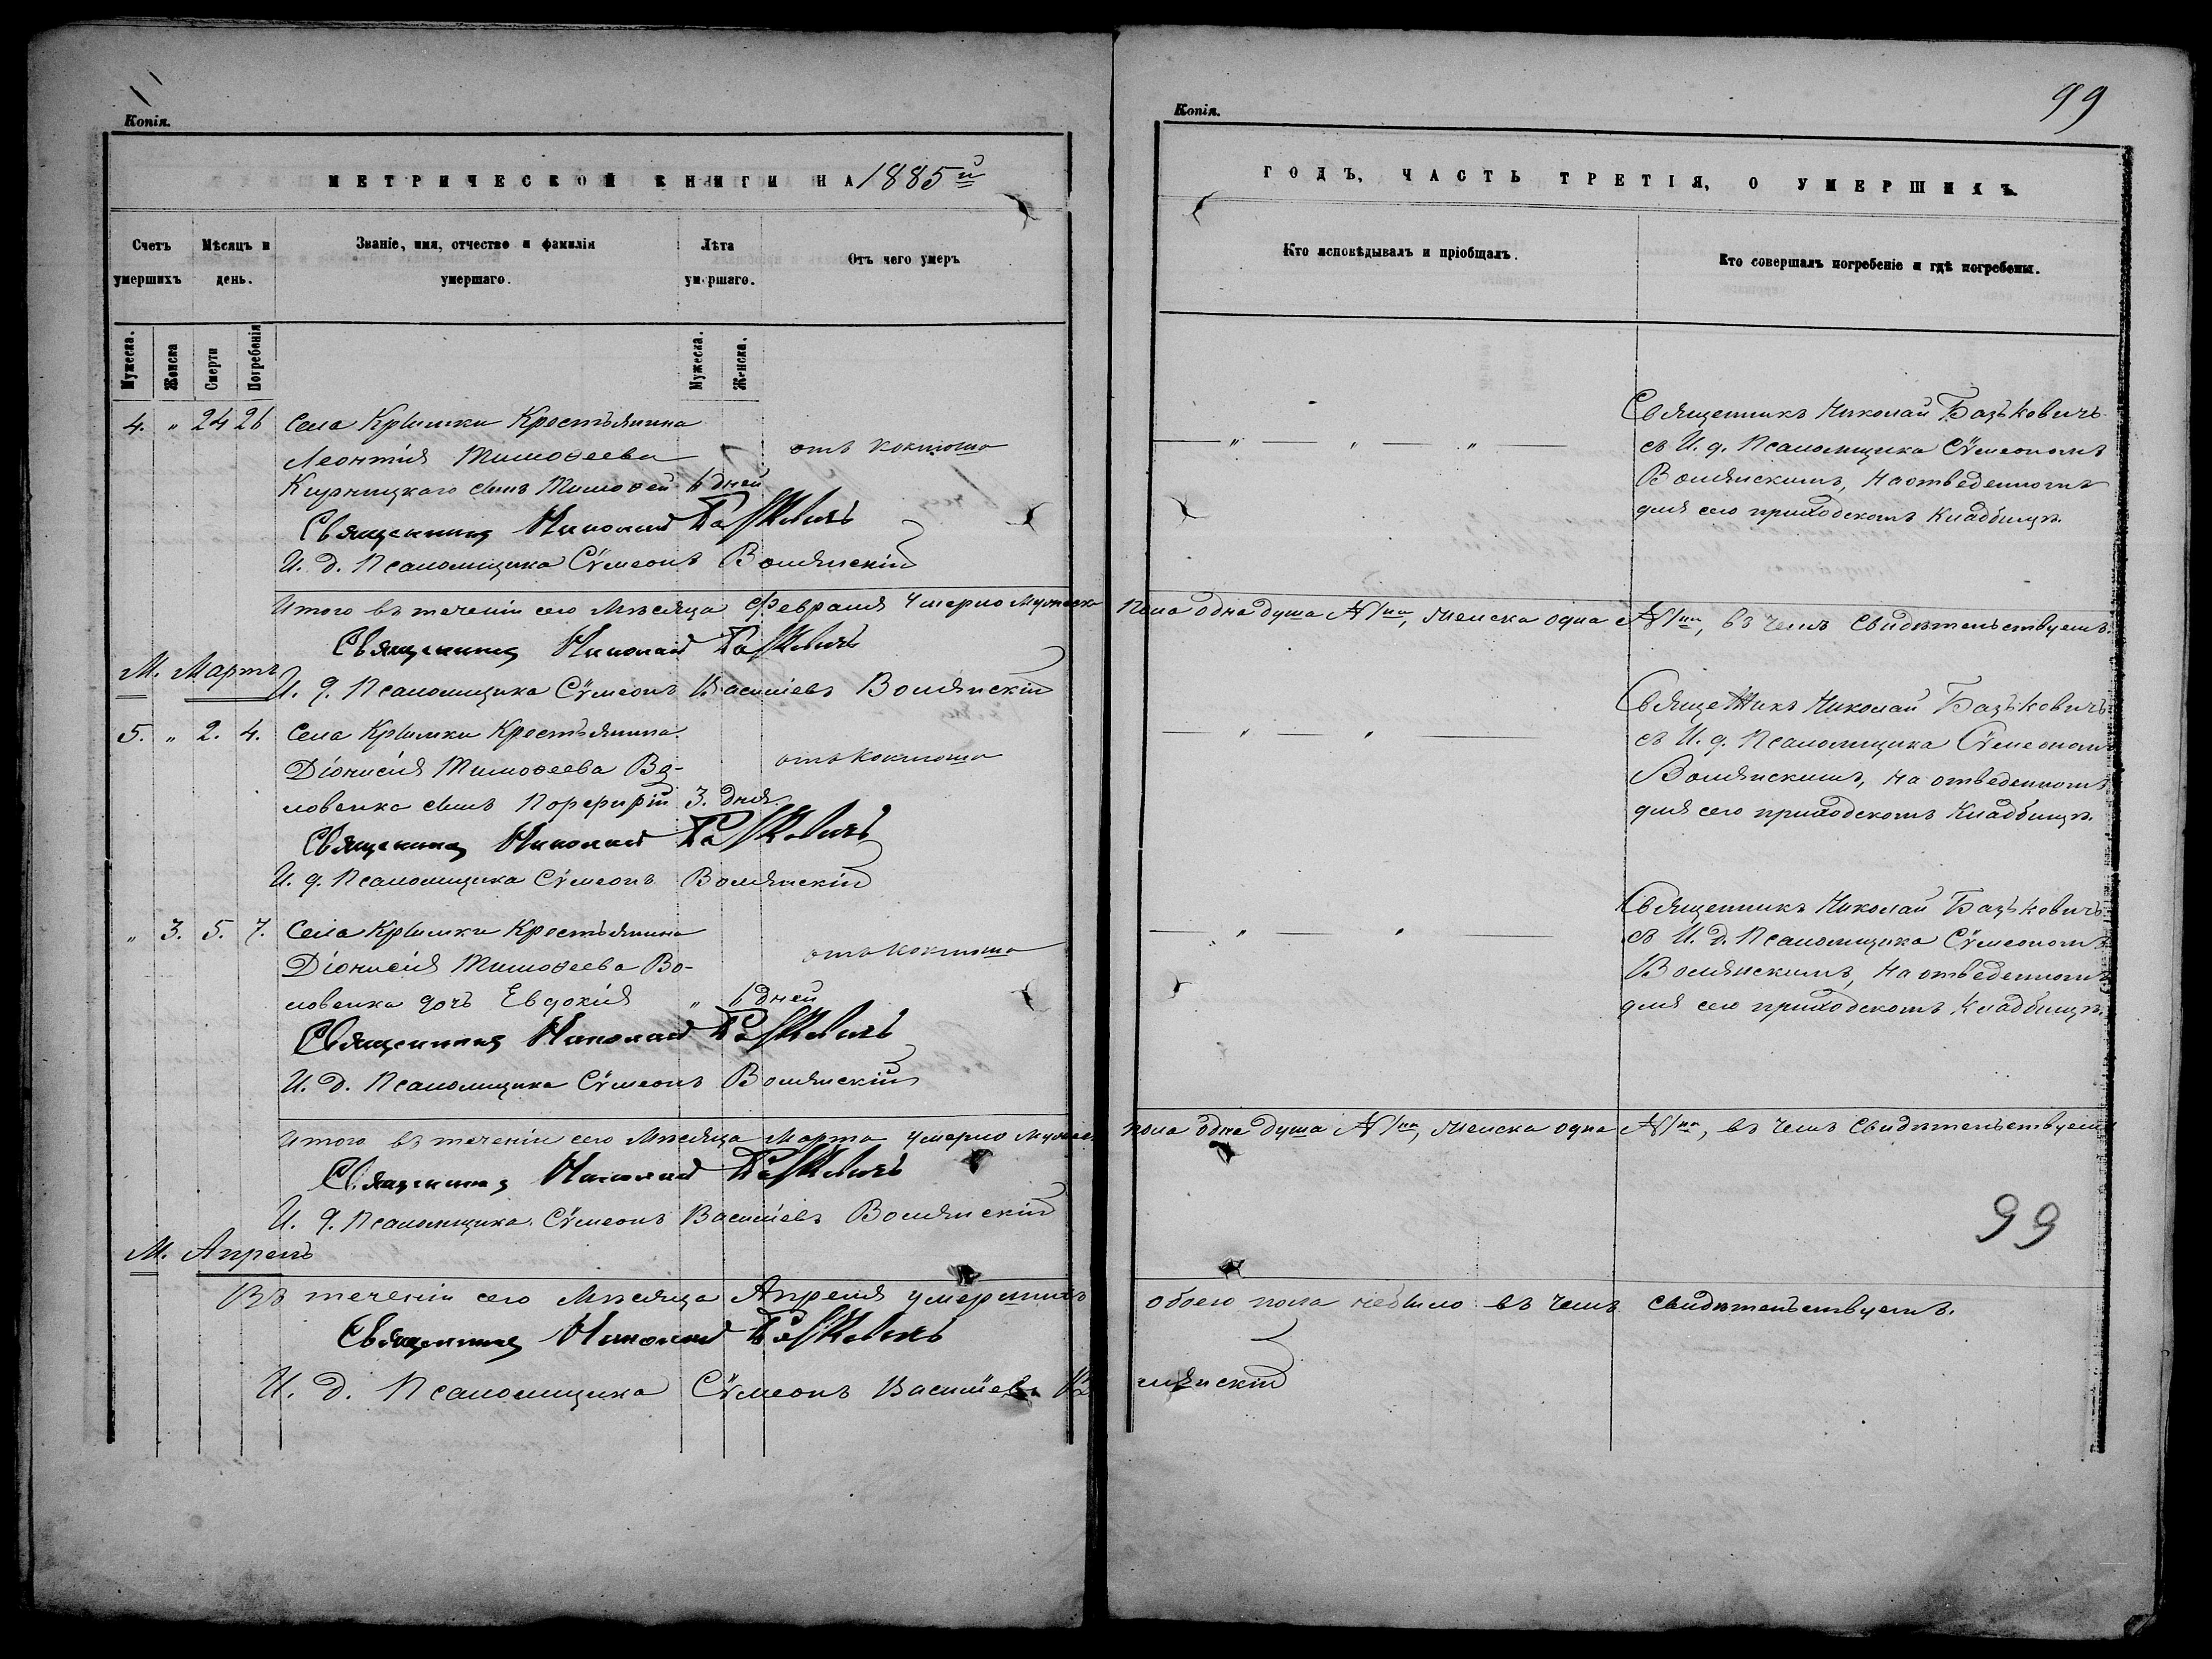 Копія.
МЕТРИЧЕСКОЙ КНИГИ НА 1885й
Счетъ умершихъ
Мѣсяцъ и день.
Званіе, имя, отчество и фамилія умершаго.
Лѣта умершаго.
Отъ чего умеръ
Мужеска.
Женска
Смерти
Погребенія
Мужеска.
Женска.
4. " 24 26 Села Крымки Крестьянина
Леонтія Тимоѳеева отъ коклюша
Курницкаго сынъ Тимоѳей 6 дней
Священникъ Николай Базькевичъ
И. д. Псаломщика Сѵмеонъ Волянскій
Итого въ теченіи сего Мѣсяца Февраля умерло Мужеска
Священникъ Николай Базькевичъ
М. Мартъ
И. д. Псаломщика Сѵмеонъ Василіевъ Волянскій
5. " 2. 4. Села Крымки Крестьянина
Діонисія Тимоѳеева Во- отъ коклюша
ловенка сынъ Порфирій 3. дня.
Священникъ Николай Базькевичъ
И. д. Псаломщика Сѵмеонъ Волянскій
" 3. 5. 7. Села Крымки Крестьянина
Діонисія Тимоѳеева Во- отъ коклюша
ловенка дочь Евдокія " 6 дней
Священникъ Николай Базькевичъ
И. д. Псаломщика Сѵмеонъ Волянскій
Итого въ теченіи сего Мѣсяца Марта умерло Мужеск
Священникъ Николай Базькевичъ
И. д. Псаломщика Сѵмеонъ Василіевъ Волянскій
М. Апрель
Въ теченіи сего Мѣсяца Апреля умершихъ
Священникъ Николай Базькевичъ
И. д. Псаломщика Сѵмеонъ Василіевъ Во
99
Копія.
ГОДЪ, ЧАСТЬ ТРЕТІЯ, О УМЕРШИХЪ
Кто исповѣдывалъ и пріобщалъ.
Кто совершалъ погребеніе и гдѣ погребены.
Священникъ Николай Базькевичъ
съ И. д. Псаломщика Сѵмеономъ
Волянскимъ, на отведенномъ
для сего приходскомъ Кладбищѣ.
пола одна душа №1на, женска одна №1на, въ чемъ свидѣтельствуемъ.
Священникъ Николай Базькевичъ
съ И. д. Псаломщика Сѵмеономъ
Волянскимъ, на отведенномъ
для сего приходскомъ Кладбищѣ.
Священникъ Николай Базькевичъ
съ И. д. Псаломщика Сѵмеономъ
Волянскимъ, на отведенномъ
для сего приходскомъ Кладбищѣ.
пола одна душа №1на, женска одна №1на, въ чемъ свидѣтельствуемъ
99
обоего пола небыло въ чемъ свидѣтельствуемъ.
лянскій